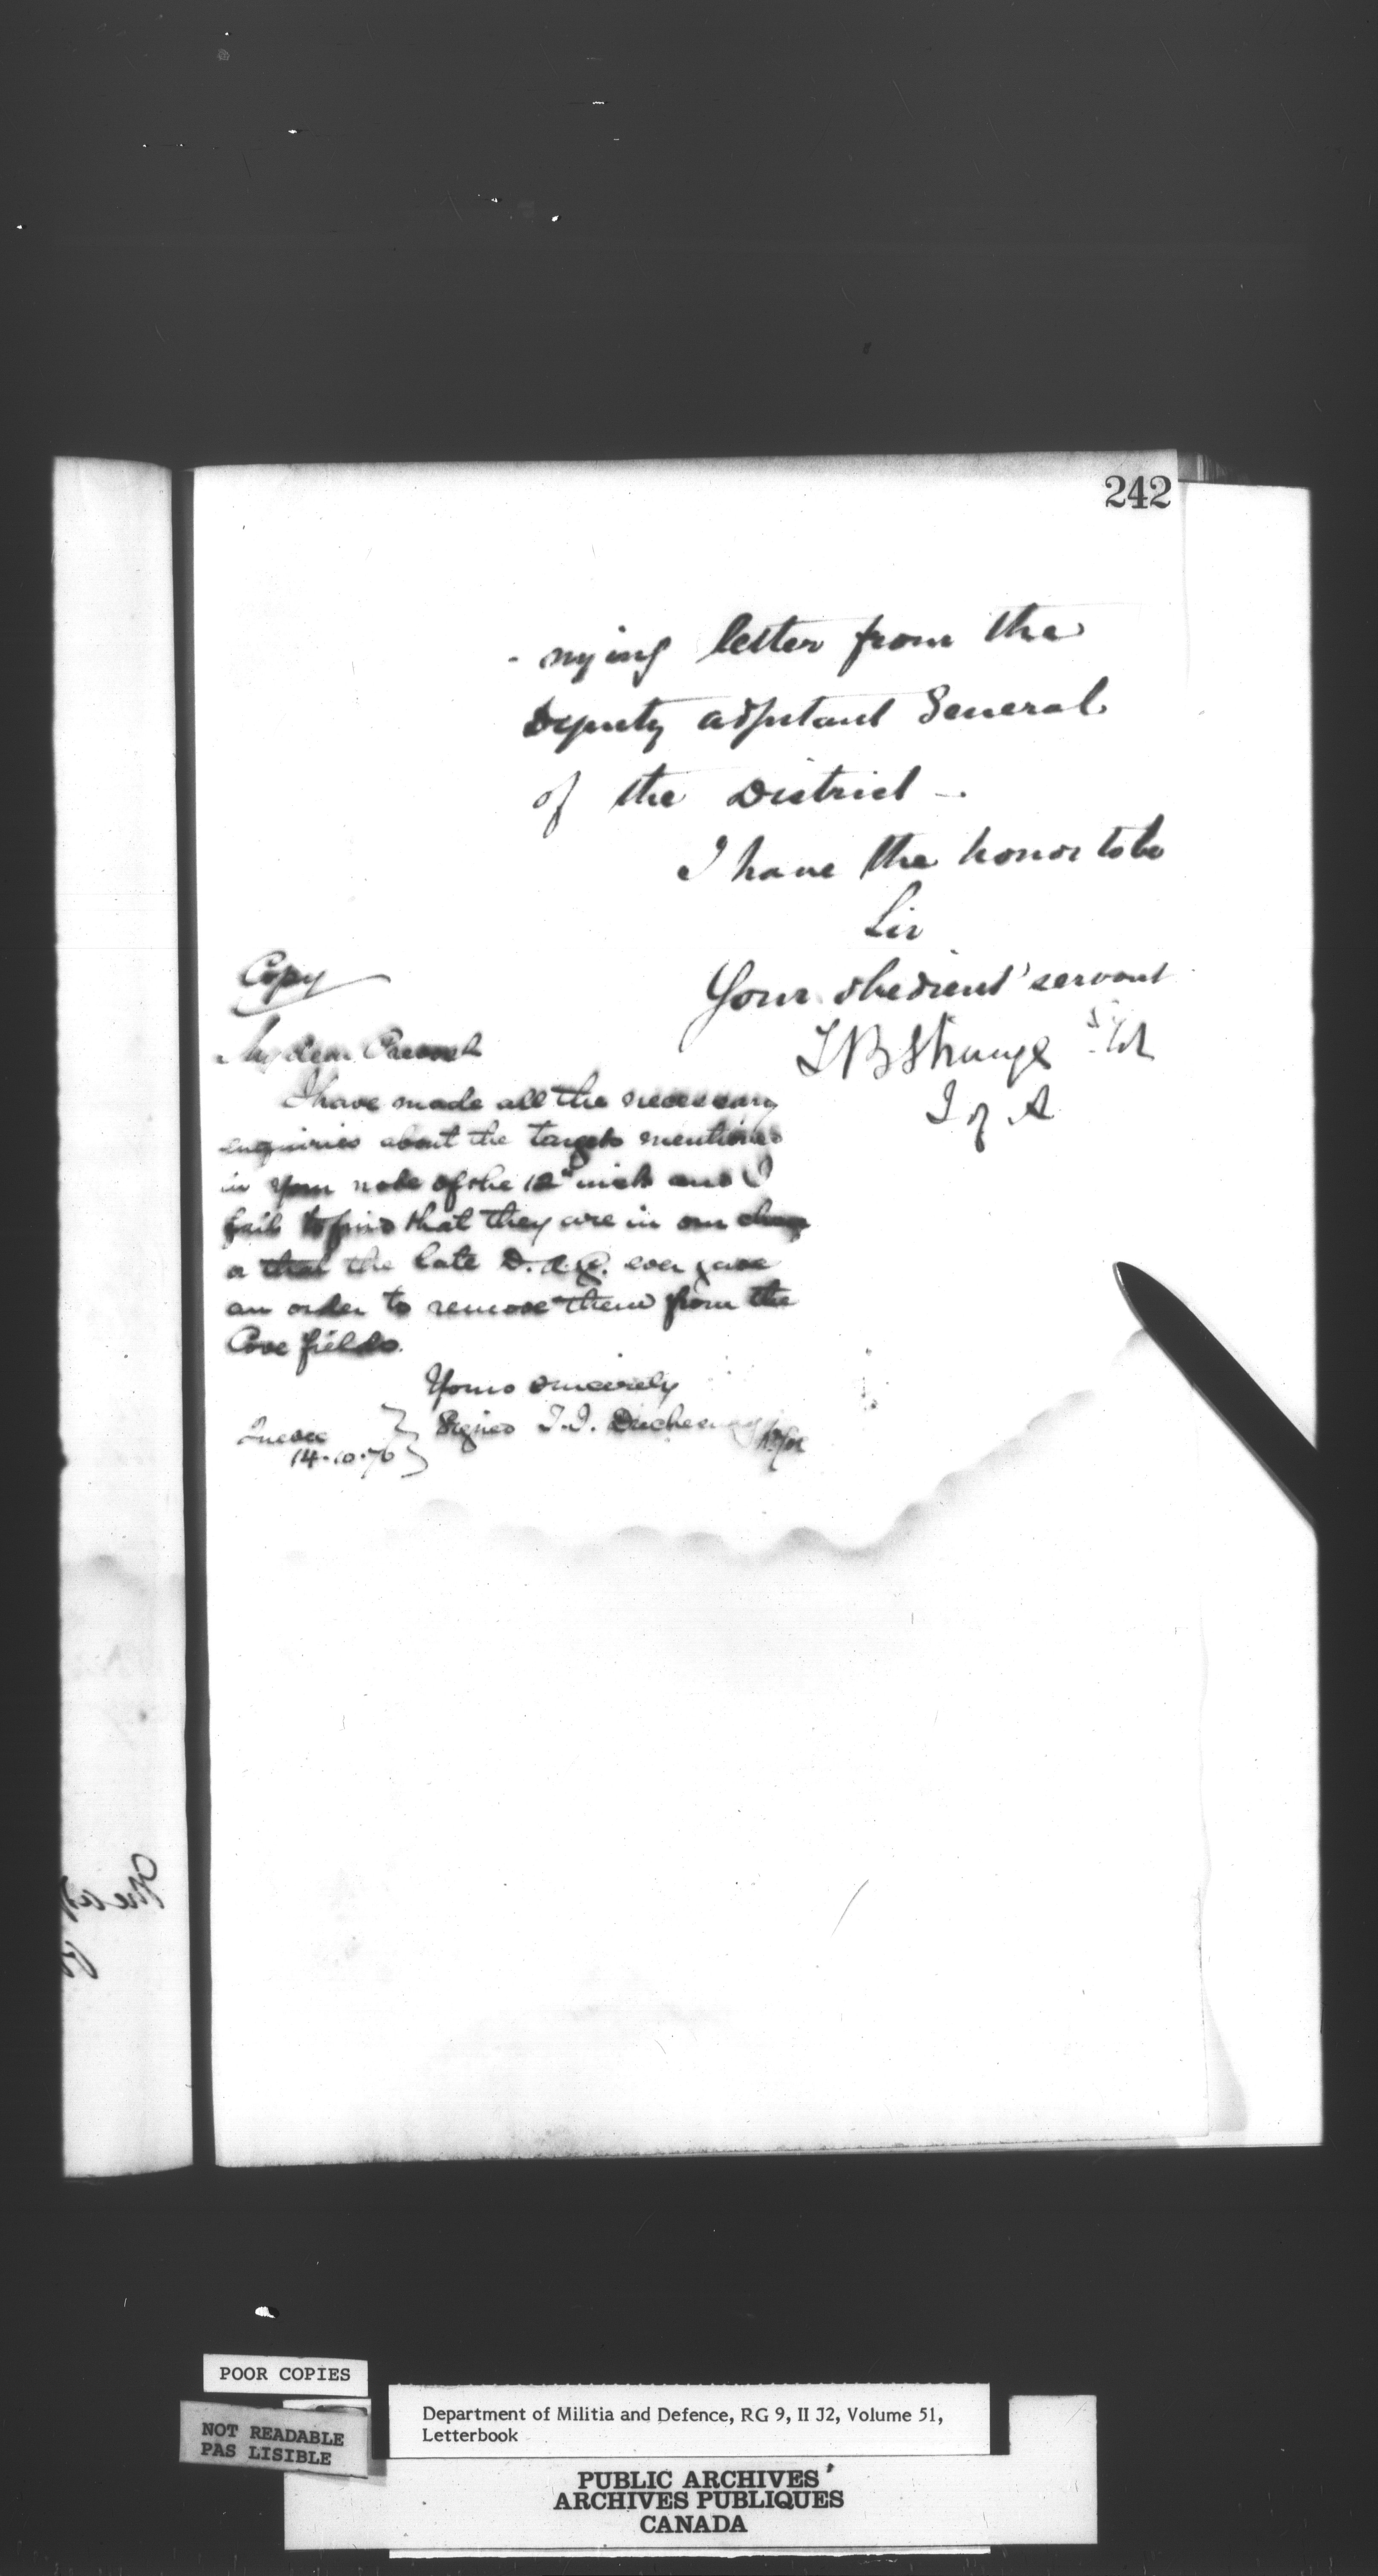 242
- nying letter from the
Deputy adjutant General
of the District -.
I have the honor to be
Sir
Your obedient servant
T B Strange Lt Col
I of A
Copy
My dear
I have made all the necessary
enquiries about the targets mentioned
in your note of the 12th inst and I
fail to find that they are in our charge
or that the late D.A.G. ever gave
an order to remove them from the
Cove fields.
Yours sincerely
Signed T.J. Duchesnay
Quebec
14.10.76
POOR COPIES
NOT READABLE
PAS LISIBLE
Department of Militia and Defence, RG 9, II J2, Volume 51,
Letterbook
PUBLIC ARCHIVES
ARCHIVES PUBLIQUES
CANADA